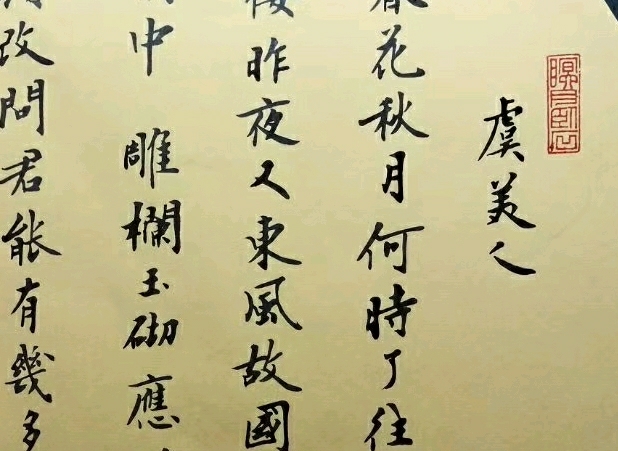 虞美人
春花秋月何時了往
樓昨夜又東風故國
中雕欄玉砌應
改問君能有幾多